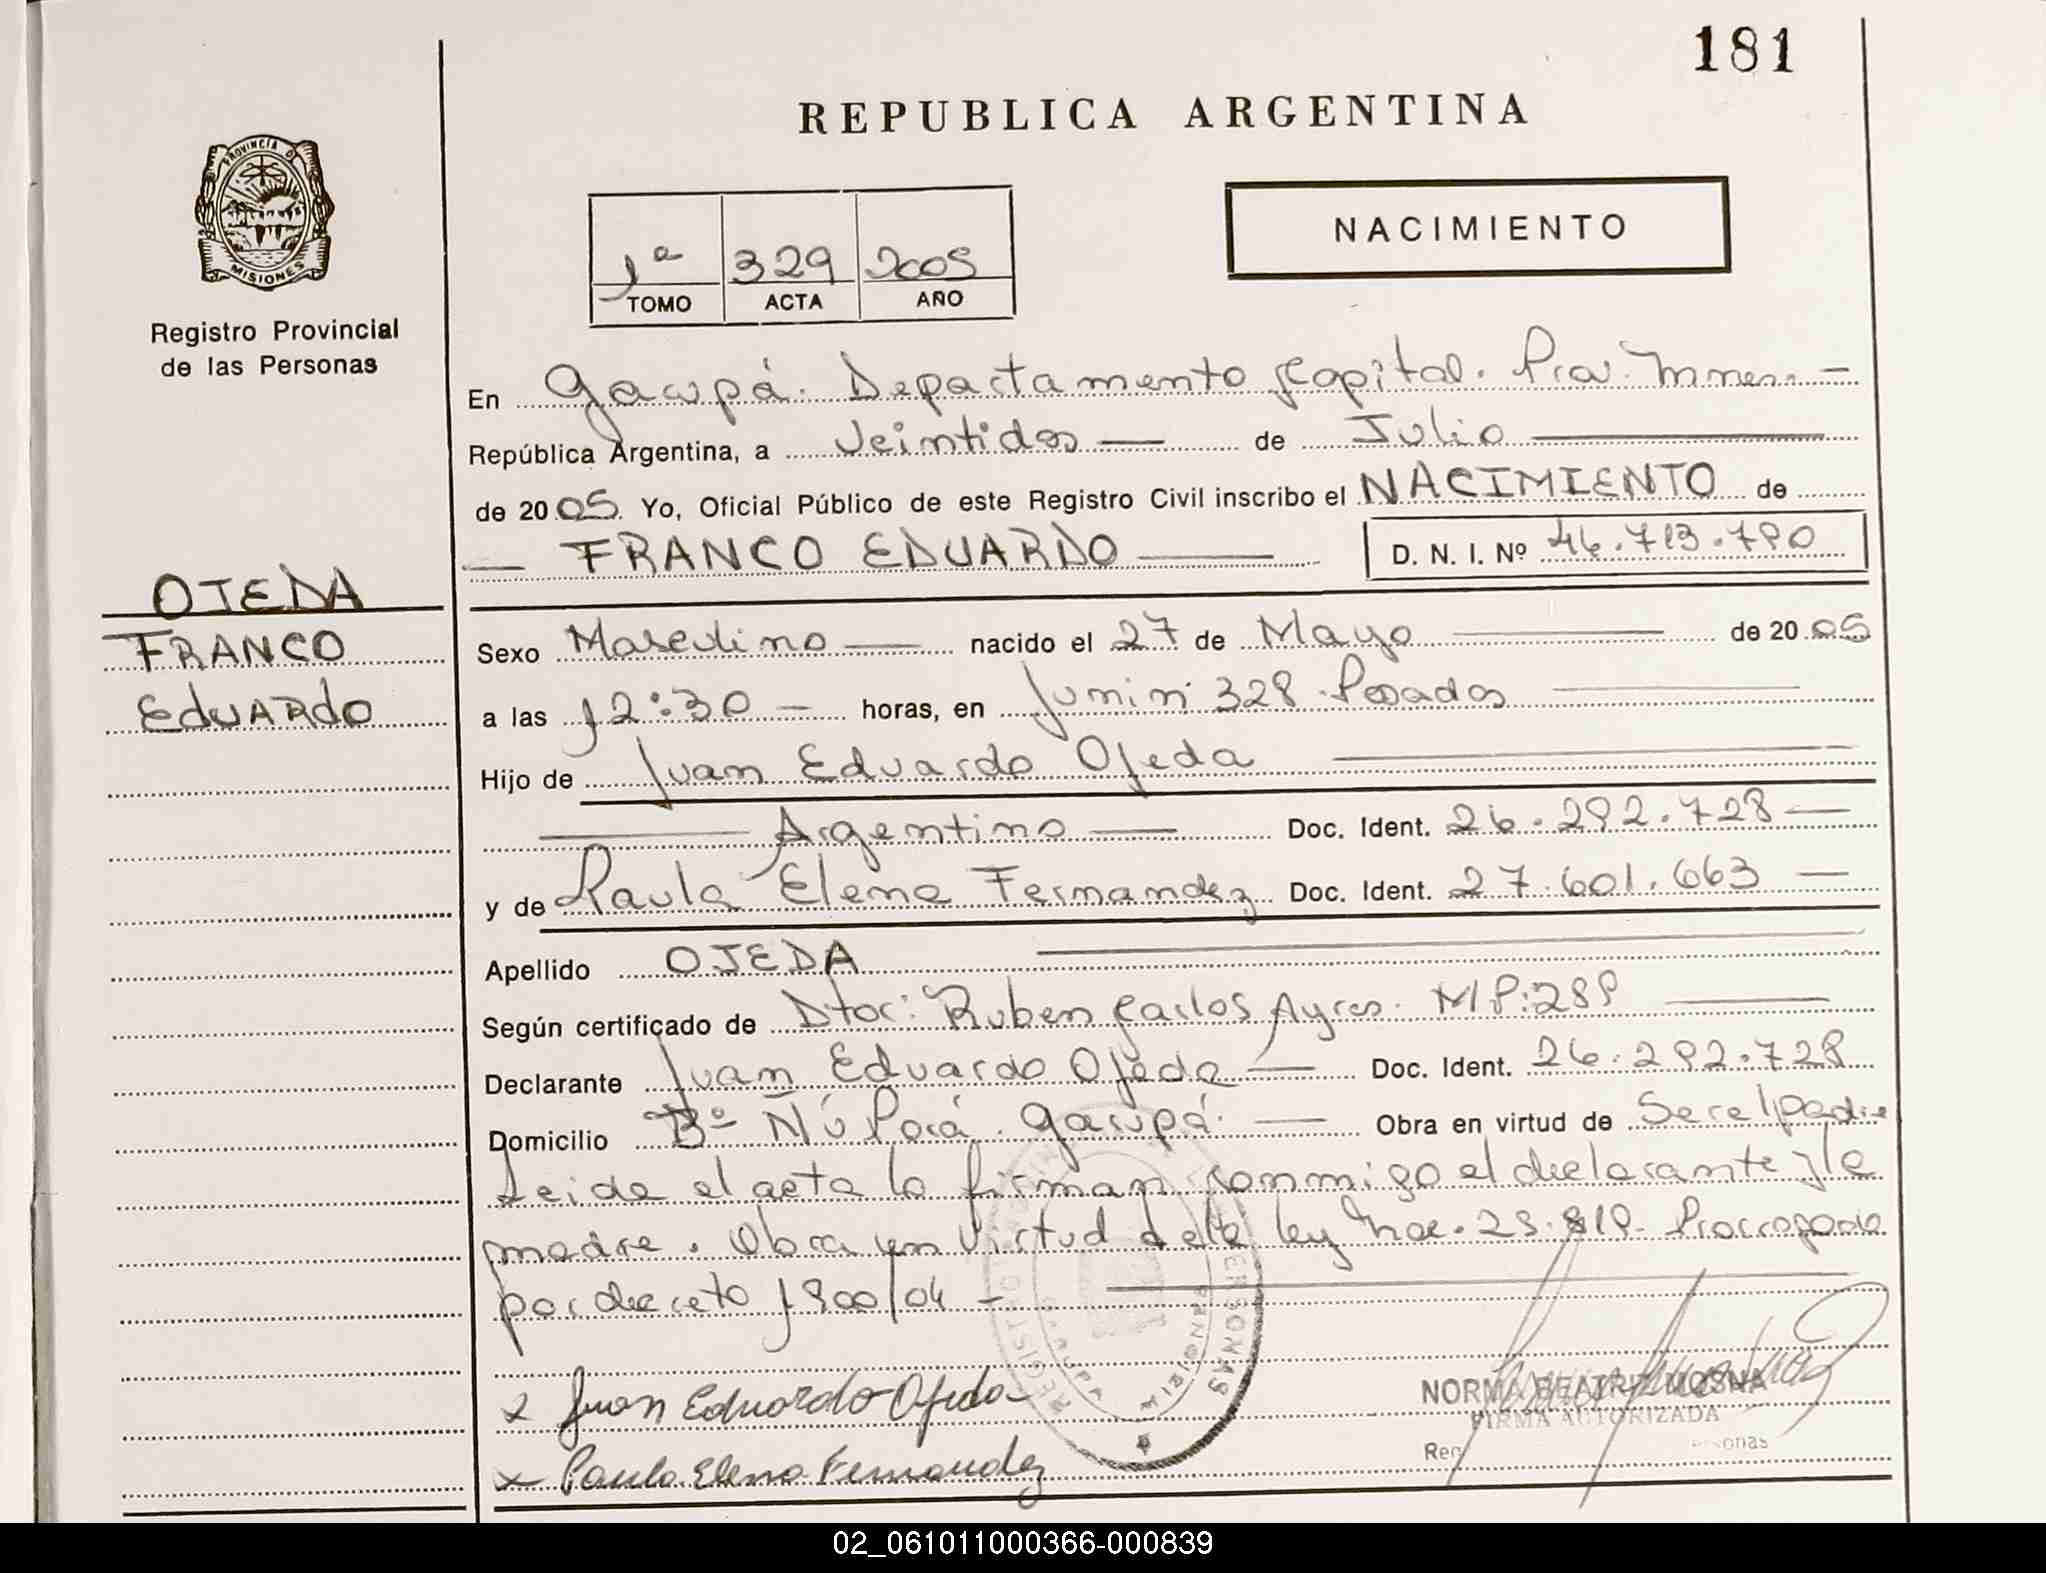 181
REPUBLICA ARGENTINA
PROVINCIA DE
MISIONES
Registro Provincial
de las Personas
NACIMIENTO
1ª 329 2005
TOMO ACTA AÑO
En Garupá. Departamento Capital. Prov. Mnes. —
República Argentina, a Veintidos — de Julio —
de 2005 Yo, Oficial Público de este Registro Civil inscribo el NACIMIENTO de
— FRANCO EDUARDO —
D. N. I. Nº 46.713.790
OJEDA
FRANCO
EDUARDO
Sexo Masculino — nacido el 27 de Mayo — de 2005
a las 12:30 — horas, en Junin 328 Posadas —
Hijo de Juan Eduardo Ojeda —
— Argentino — Doc. Ident. 26.292.728 —
y de Paula Elena Fernandez Doc. Ident. 27.601.663 —
Apellido OJEDA —
Según certificado de Dtor: Ruben Carlos Ayres. MP:289 —
Declarante Juan Eduardo Ojeda — Doc. Ident. 26.292.728
Domicilio Bº Ñú Porá. Garupá. — Obra en virtud de Ser el padre
Leida el acta la firman conmigo el declarante y la
madre. Obra en virtud de la ley Nac. 25.819. Prorrogada
por decreto 1900/04 —
x Juan Eduardo Ojeda
x Paula Elena Fernandez
NORMA BEATRIZ
FIRMA AUTORIZADA
02_061011000366-000839